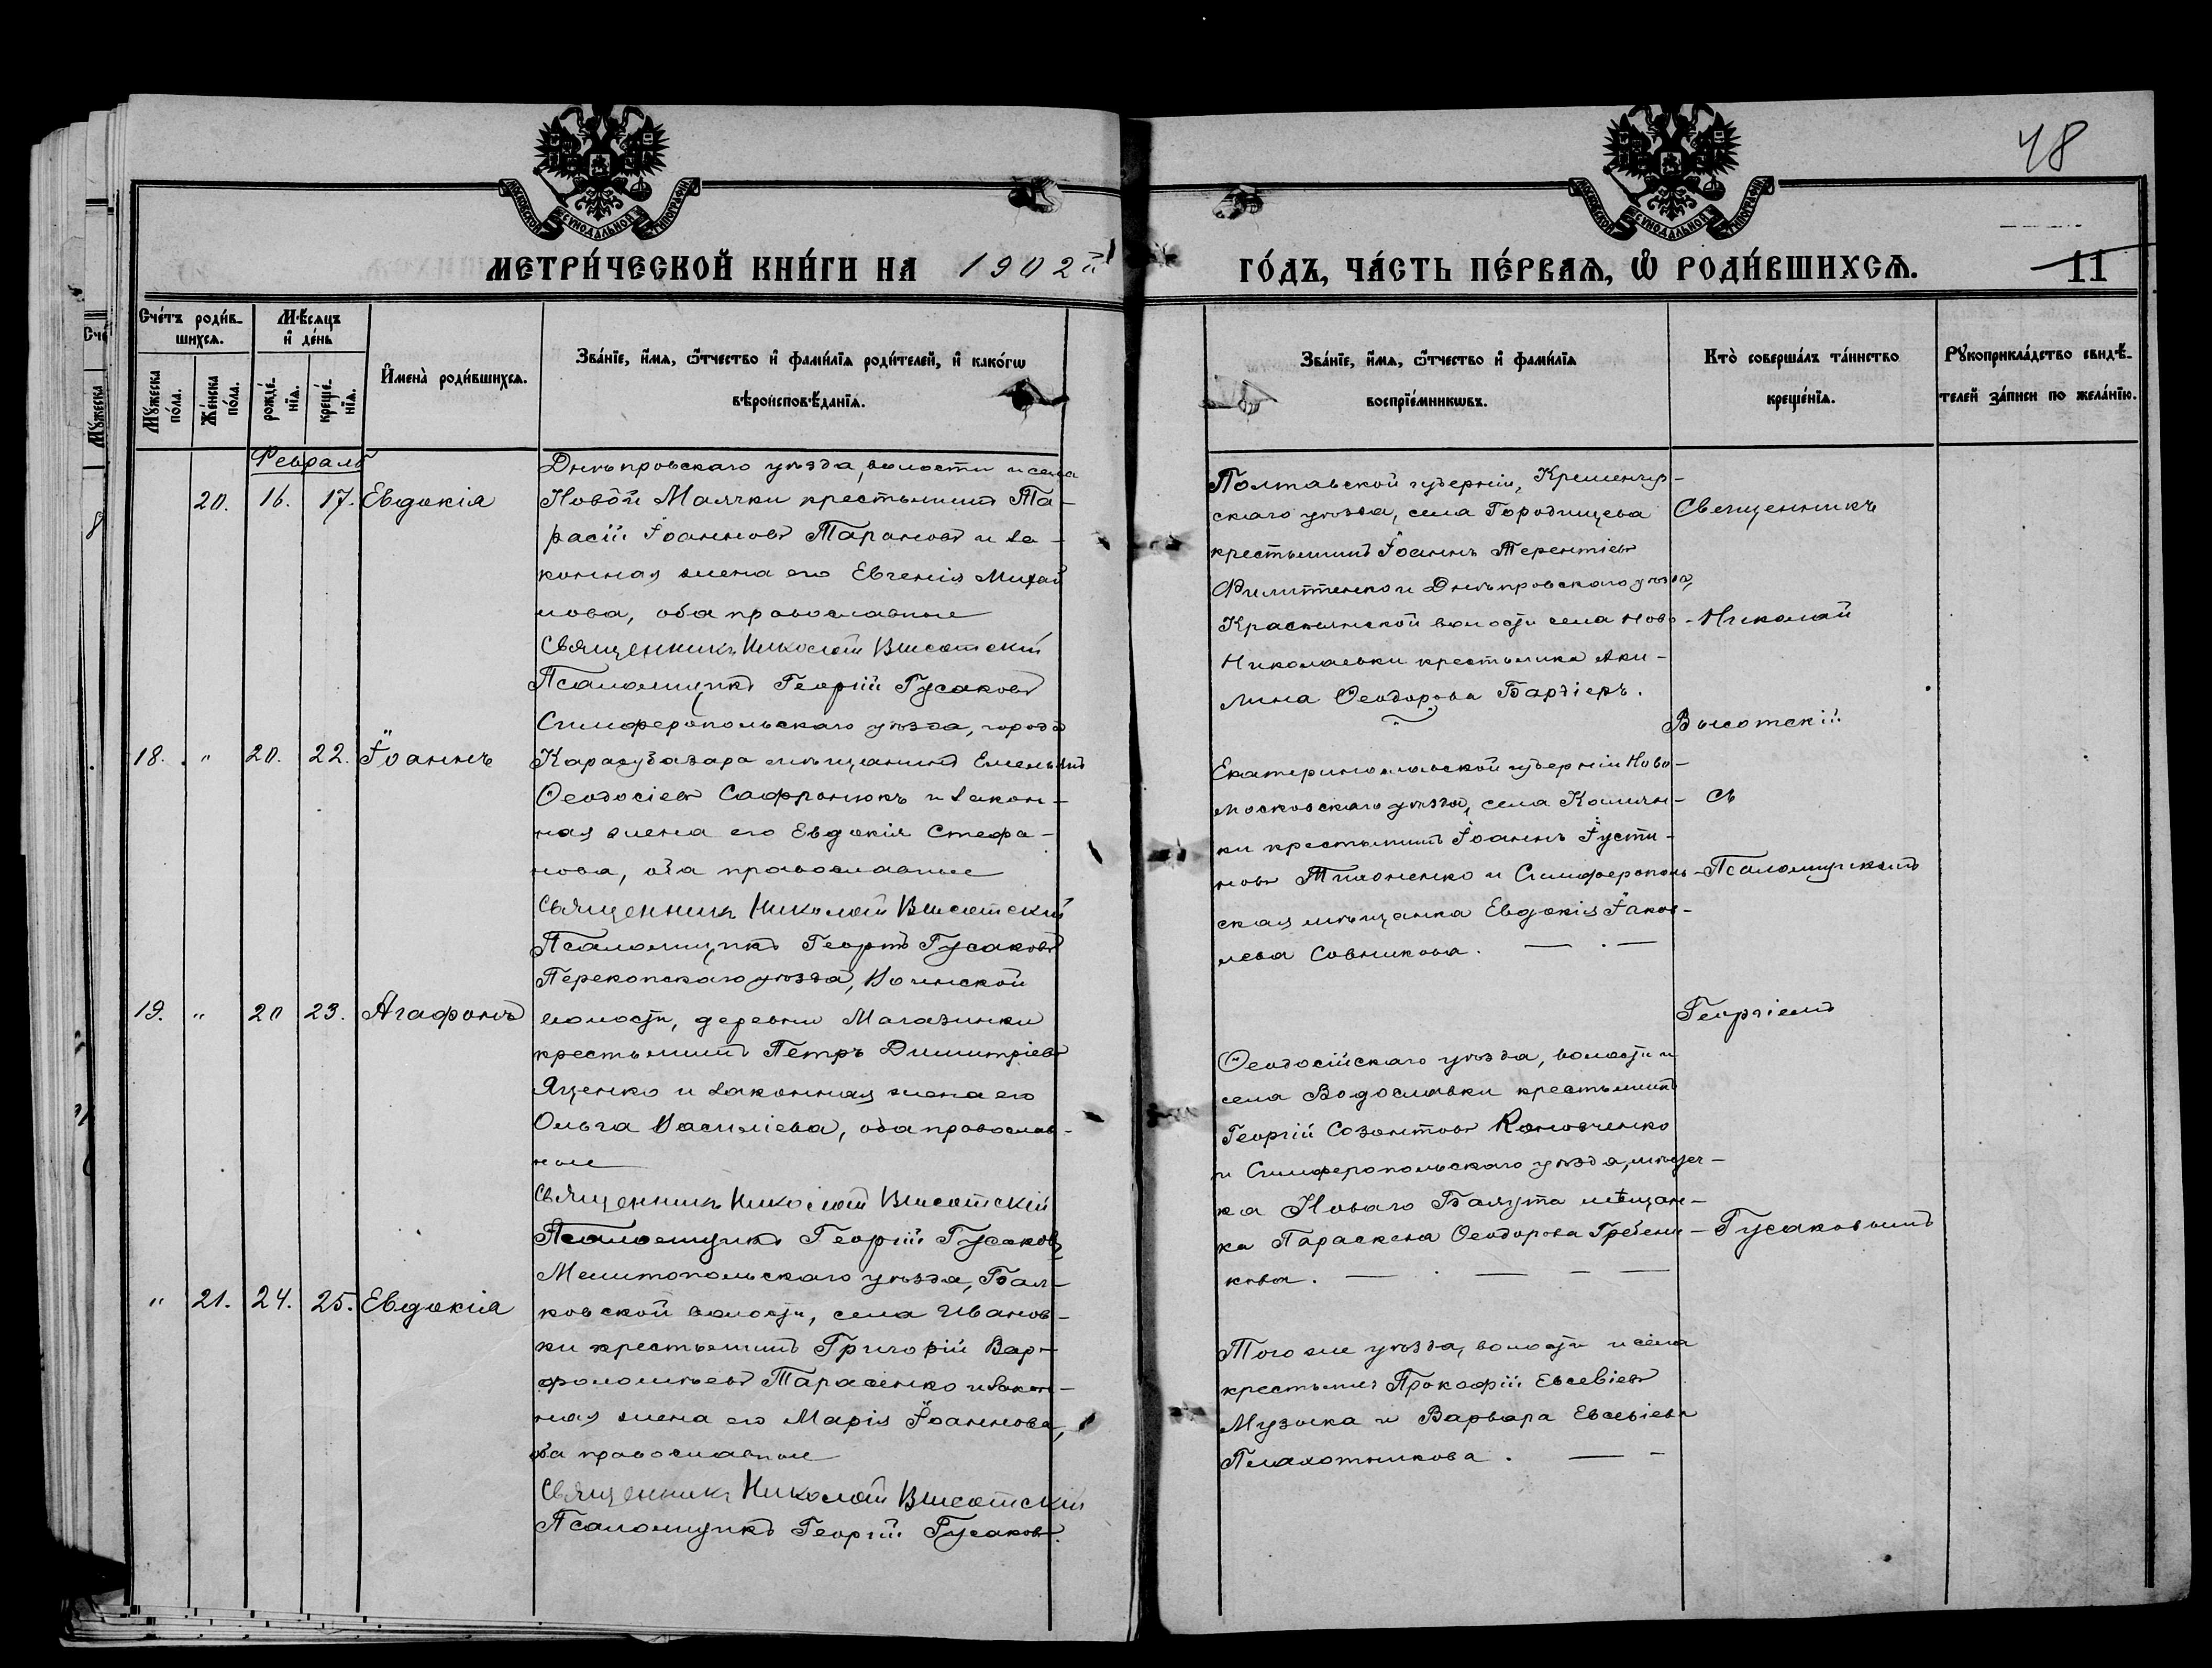 48
МОСКОВСКОЙ СѴНОДАЛЬНОЙ ТИПОГРАФІИ
МОСКОВСКОЙ СѴНОДАЛЬНОЙ ТИПОГРАФІИ
МЕТРИ́ЧЕСКОЙ КНИ́ГИ НА 1902й
ГО́ДЪ, ЧА́СТЬ ПЕ́РВАѦ, Ѡ҆ РОДИ́ВШИХСѦ.
11
Сче́тъ роди́в-
шихсѧ.
Мꙋ́жеска
по́ла.
Же́нска
по́ла.
Мѣ́сѧцъ
и҆ де́нь
рожде́-
нїѧ.
креще́-
нїѧ.
И҆мена̀ роди́вшихсѧ.
Зва́нїе, и҆́мѧ, ѻ҆́тчество и҆ фами́лїѧ роди́телей, и҆ како́гѡ
вѣроисповѣ́данїѧ.
Зва́нїе, и҆́мѧ, ѻ҆́тчество и҆ фами́лїѧ
воспрїе́мникѡвъ.
Кто̀ соверша́лъ та́инство
креще́нїѧ.
Рꙋкоприкла́дство свидѣ́-
телей за́писи по жела́нїю.
Февраль
20. 16. 17. Евдокія
Днѣпровскаго уѣзда, волости и села
Новой Маячки крестьянинъ Та-
расій Іоанновъ Тарановъ и за-
конная жена его Евгенія Михай
лова, оба православные
Священникъ Николай Высотскій
Псаломщикъ Георгій Гусаковъ
Полтавской губерніи, Кременчуг-
скаго уѣзда, села Городищева
крестьянинъ Іоаннъ Терентіевъ
Филиппенко и Днѣпровскаго уѣзда,
Краснянской волости села Ново-
Николаевки крестьянка Аки-
лина Ѳеодорова Бардіеръ.
Священникъ
Николай
Высотскій
съ
Псаломщикомъ
Георгіемъ
Гусаковымъ
18. " 20. 22. Іоаннъ
Симферопольскаго уѣзда, города
Карасубазара мѣщанинъ Емельянъ
Ѳеодосіевъ Сафронюкъ и закон-
ная жена его Евдокія Стефа-
нова, оба православные
Священникъ Николай Высотскій
Псаломщикъ Георгій Гусаковъ
Екатеринославской губерніи Ново-
московскаго уѣзда, села Камян-
ки крестьянинъ Іоаннъ Іусти-
новъ Тихоненко и Симферополь-
ская мѣщанка Евдокія Іаков-
лева Совникова.
19. " 20 23. Агафонъ
Перекопскаго уѣзда, Воинской
волости, деревни Магазинки
крестьянинъ Петръ Димитріевъ
Яценко и законная жена его
Ольга Василіева, оба православ-
ные
Священникъ Николай Высотскій
Псаломщикъ Георгій Гусаковъ
Ѳеодосійскаго уѣзда, волости и
села Водославки крестьянинъ
Георгій Созонтовъ Коновченко
и Симферопольскаго уѣзда, мѣстеч-
ка Новаго Баяута мѣщан-
ка Параскева Ѳеодорова Гребени-
кова.
" 21. 24. 25. Евдокія
Мелитопольскаго уѣзда, Бал-
ковской волости, села Иванов-
ки крестьянинъ Григорій Вар-
ѳоломѣевъ Тарасенко и закон-
ная жена его Марія Іоаннова,
оба православные
Священникъ Николай Высотскій
Псаломщикъ Георгій Гусаковъ.
Того же уѣзда, волости и села
крестьянинъ Прокофій Евсевіевъ
Музыка и Варвара Евсевіева
Плахотникова.